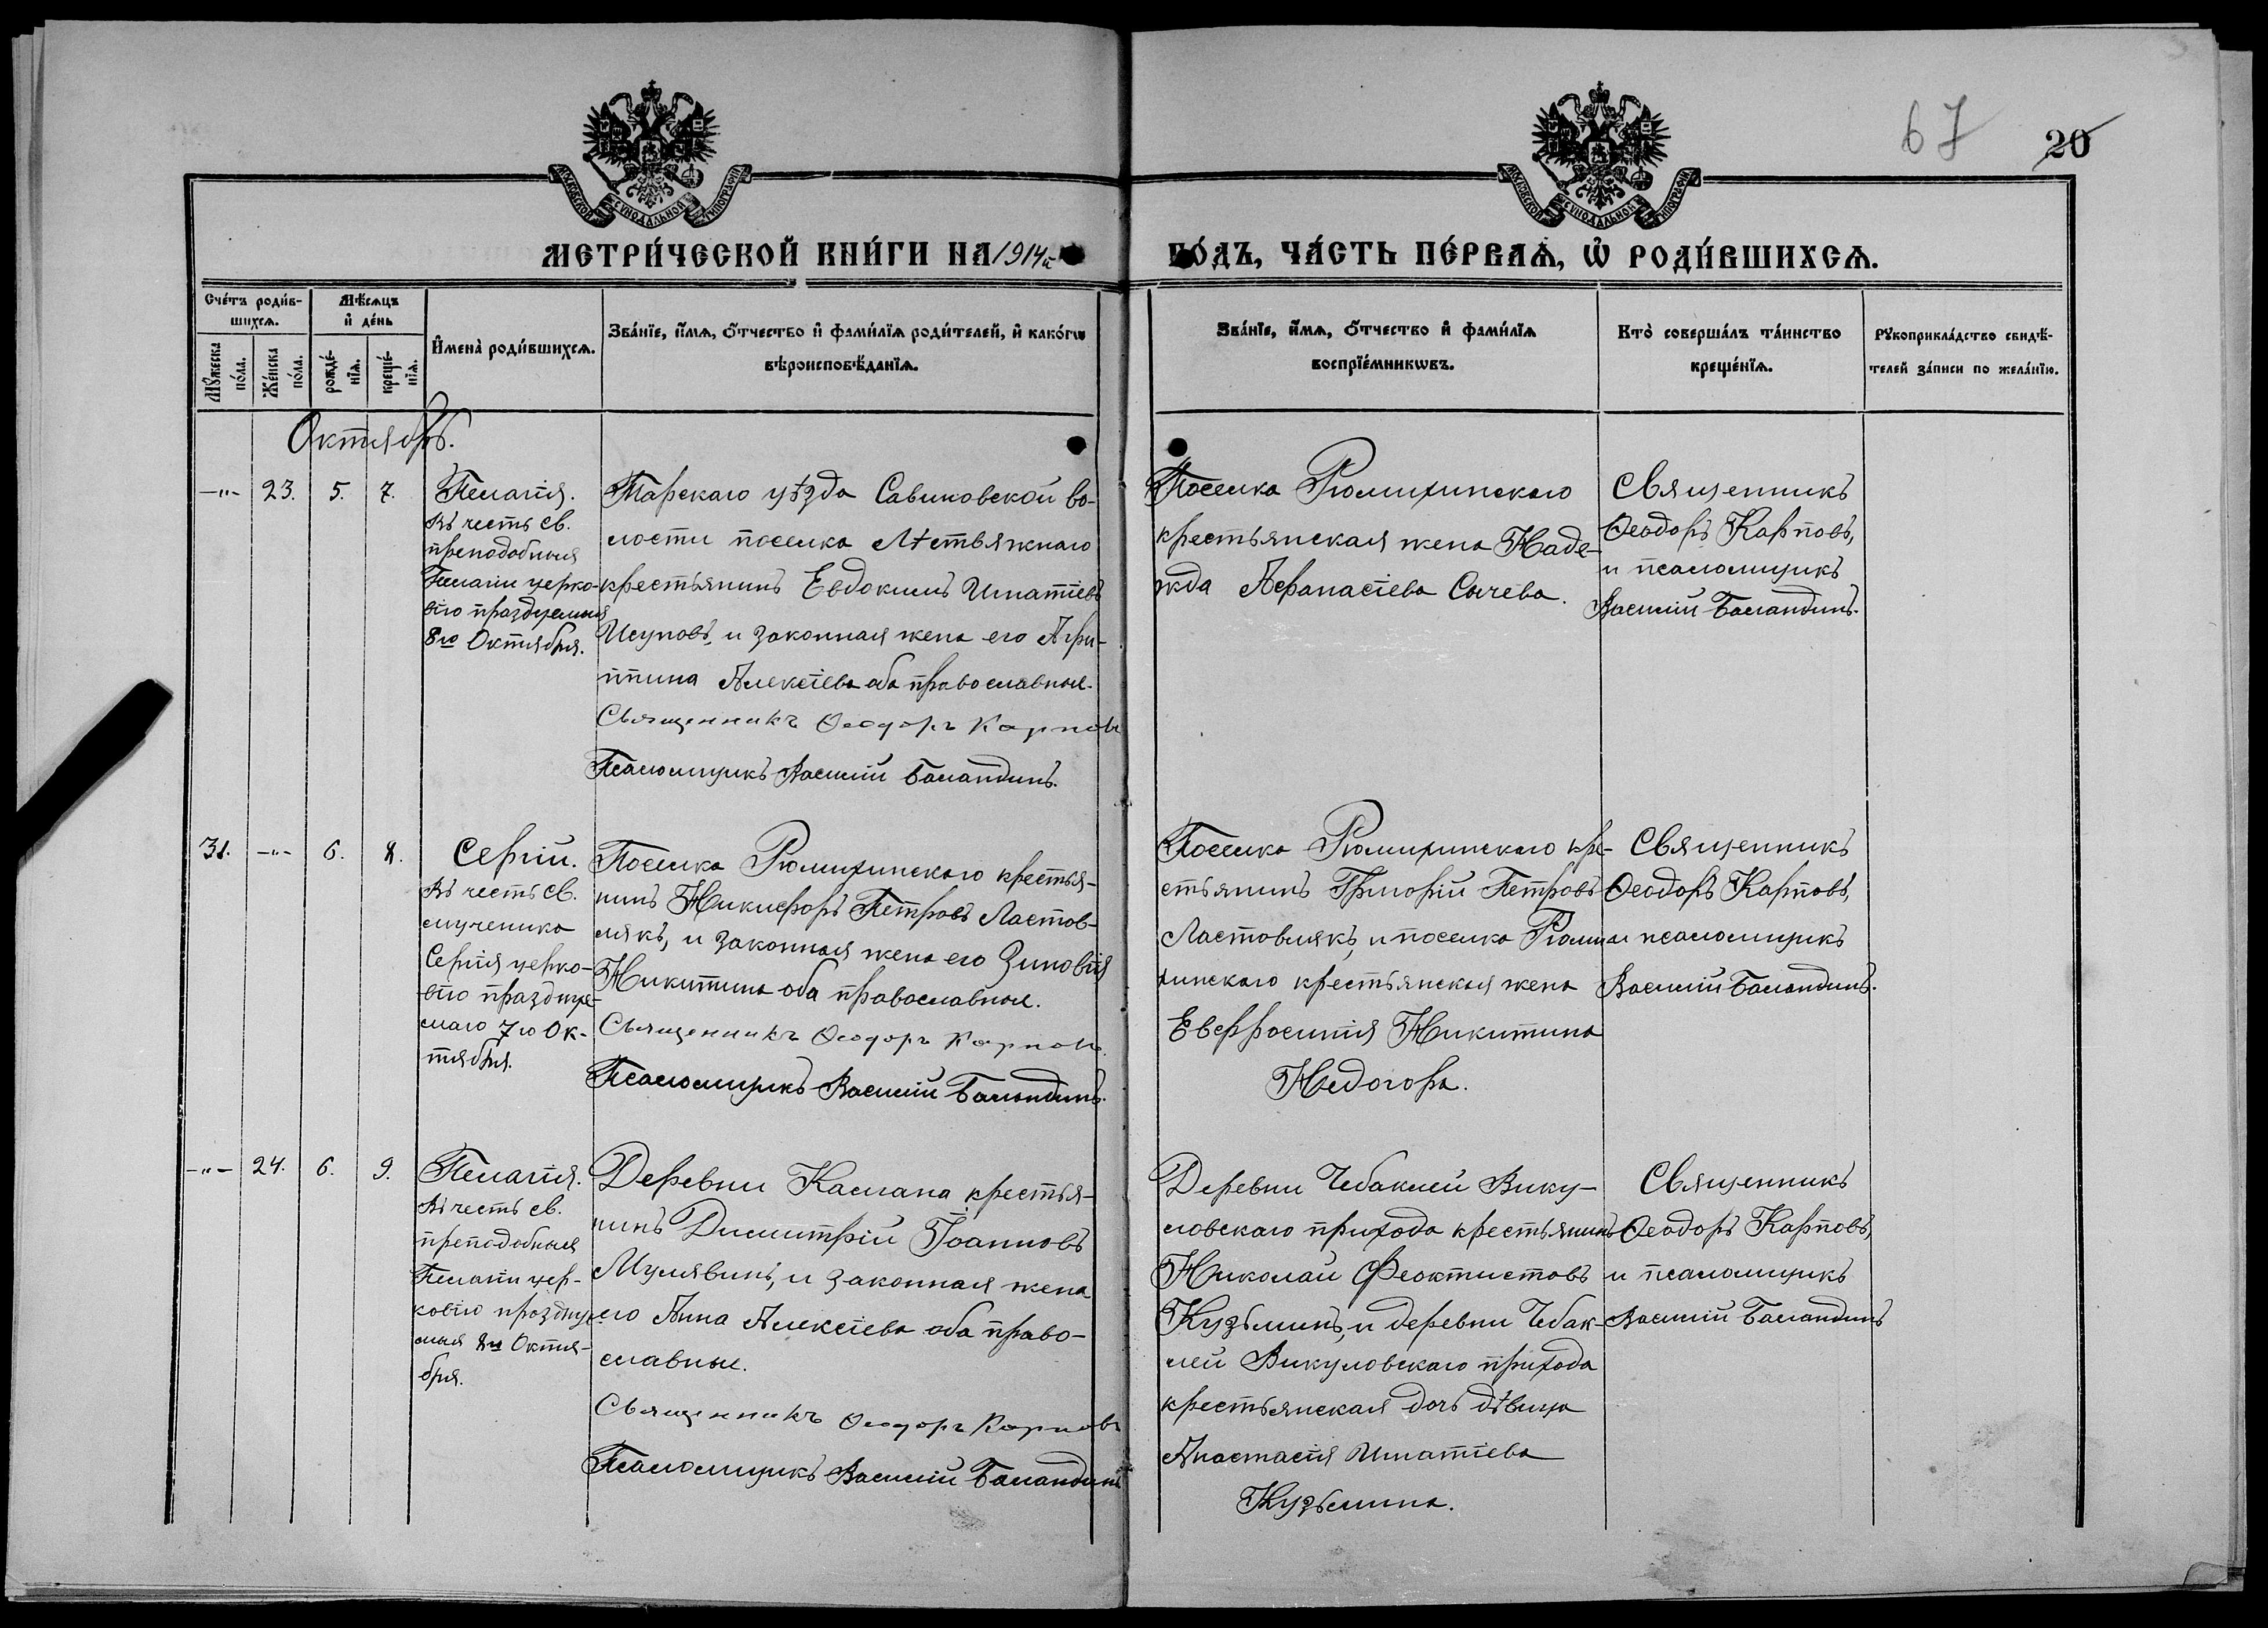 67 20
МОСКОВСКОЙ СѴНОДАЛЬНОЙ ТИПОГРАФІИ
МОСКОВСКОЙ СѴНОДАЛЬНОЙ ТИПОГРАФІИ
МЕТРИ́ЧЕСКОЙ КНИ́ГИ НА 1914й
ГО́ДЪ, ЧА́СТЬ ПЕ́РВАѦ, Ѡ РОДИ́ВШИХСѦ.
Сче́тъ роди́в-
шихсѧ.
Мѣ́сѧцъ
и҆ де́нь
Мꙋ́жеска
по́ла.
Же́нска
по́ла.
рожде́-
нїѧ.
креще́-
нїѧ.
И҆мена̀ роди́вшихсѧ.
Зва́нїе, и҆́мѧ, ѻ҆́тчество и҆ фами́лїѧ роди́телей, и҆ како́гѡ
вѣроисповѣ́данїѧ.
Зва́нїе, и҆́мѧ, ѻ҆́тчество и҆ фами́лїѧ
воспрїе́мникѡвъ.
Кто̀ соверша́лъ та́инство
креще́нїѧ.
Рꙋкоприкла́дство свидѣ́-
телей за́писи по жела́нїю.
Октябрь.
-"- 23. 5. 7.
Пелагія.
Въ честь св.
преподобныя
Пелагіи церко-
вію празднуемыя
8го Октября.
Тарскаго уѣзда Савиновской во-
лости поселка Лѣствяжнаго
крестьянинъ Евдокимъ Игнатіевъ
Исуповъ, и законная жена его Агри-
ппина Алексіева оба православные.
Священникъ Ѳеодоръ Карповъ
Псаломщикъ Василій Баландинъ.
Поселка Рюмихинскаго
крестьянская жена Наде-
жда Аѳанасіева Сычева.
Священникъ
Ѳеодоръ Карповъ,
и псаломщикъ
Василій Баландинъ.
31. -"- 6. 8.
Сергій.
Въ честь св.
мученика
Сергія церко-
вію празднуе-
маго 7го Ок-
тября.
Поселка Рюмихинскаго крестья-
нинъ Никифоръ Петровъ Ластов-
лякъ, и законная жена его Зиновія
Никитина оба православные.
Священникъ Ѳеодоръ Карповъ.
Псаломщикъ Василій Баландинъ.
Поселка Рюмихинскаго кре-
стьянинъ Григорій Петровъ
Ластовлякъ, и поселка Рюми-
хинскаго крестьянская жена
Евфросинія Никитина
Недогора.
Священникъ
Ѳеодоръ Карповъ,
и псаломщикъ
Василій Баландинъ.
-"- 24. 6. 9.
Пелагія.
Въ честь св.
преподобныя
Пелагіи цер-
ковію праздну-
емыя 8го Октя-
бря.
Деревни Каслана крестья-
нинъ Димитрій Іоанновъ
Мулявинъ, и законная жена
его Анна Алексіева оба право-
славные.
Священникъ Ѳеодоръ Карповъ
Псаломщикъ Василій Баландинъ
Деревни Чебаклей Вику-
ловскаго прихода крестьянинъ
Николай Феоктистовъ
Кузьминъ, и деревни Чебак-
лей Викуловскаго прихода
крестьянская дочь дѣвица
Анастасія Игнатіева
Кузьмина.
Священникъ
Ѳеодоръ Карповъ,
и псаломщикъ
Василій Баландинъ